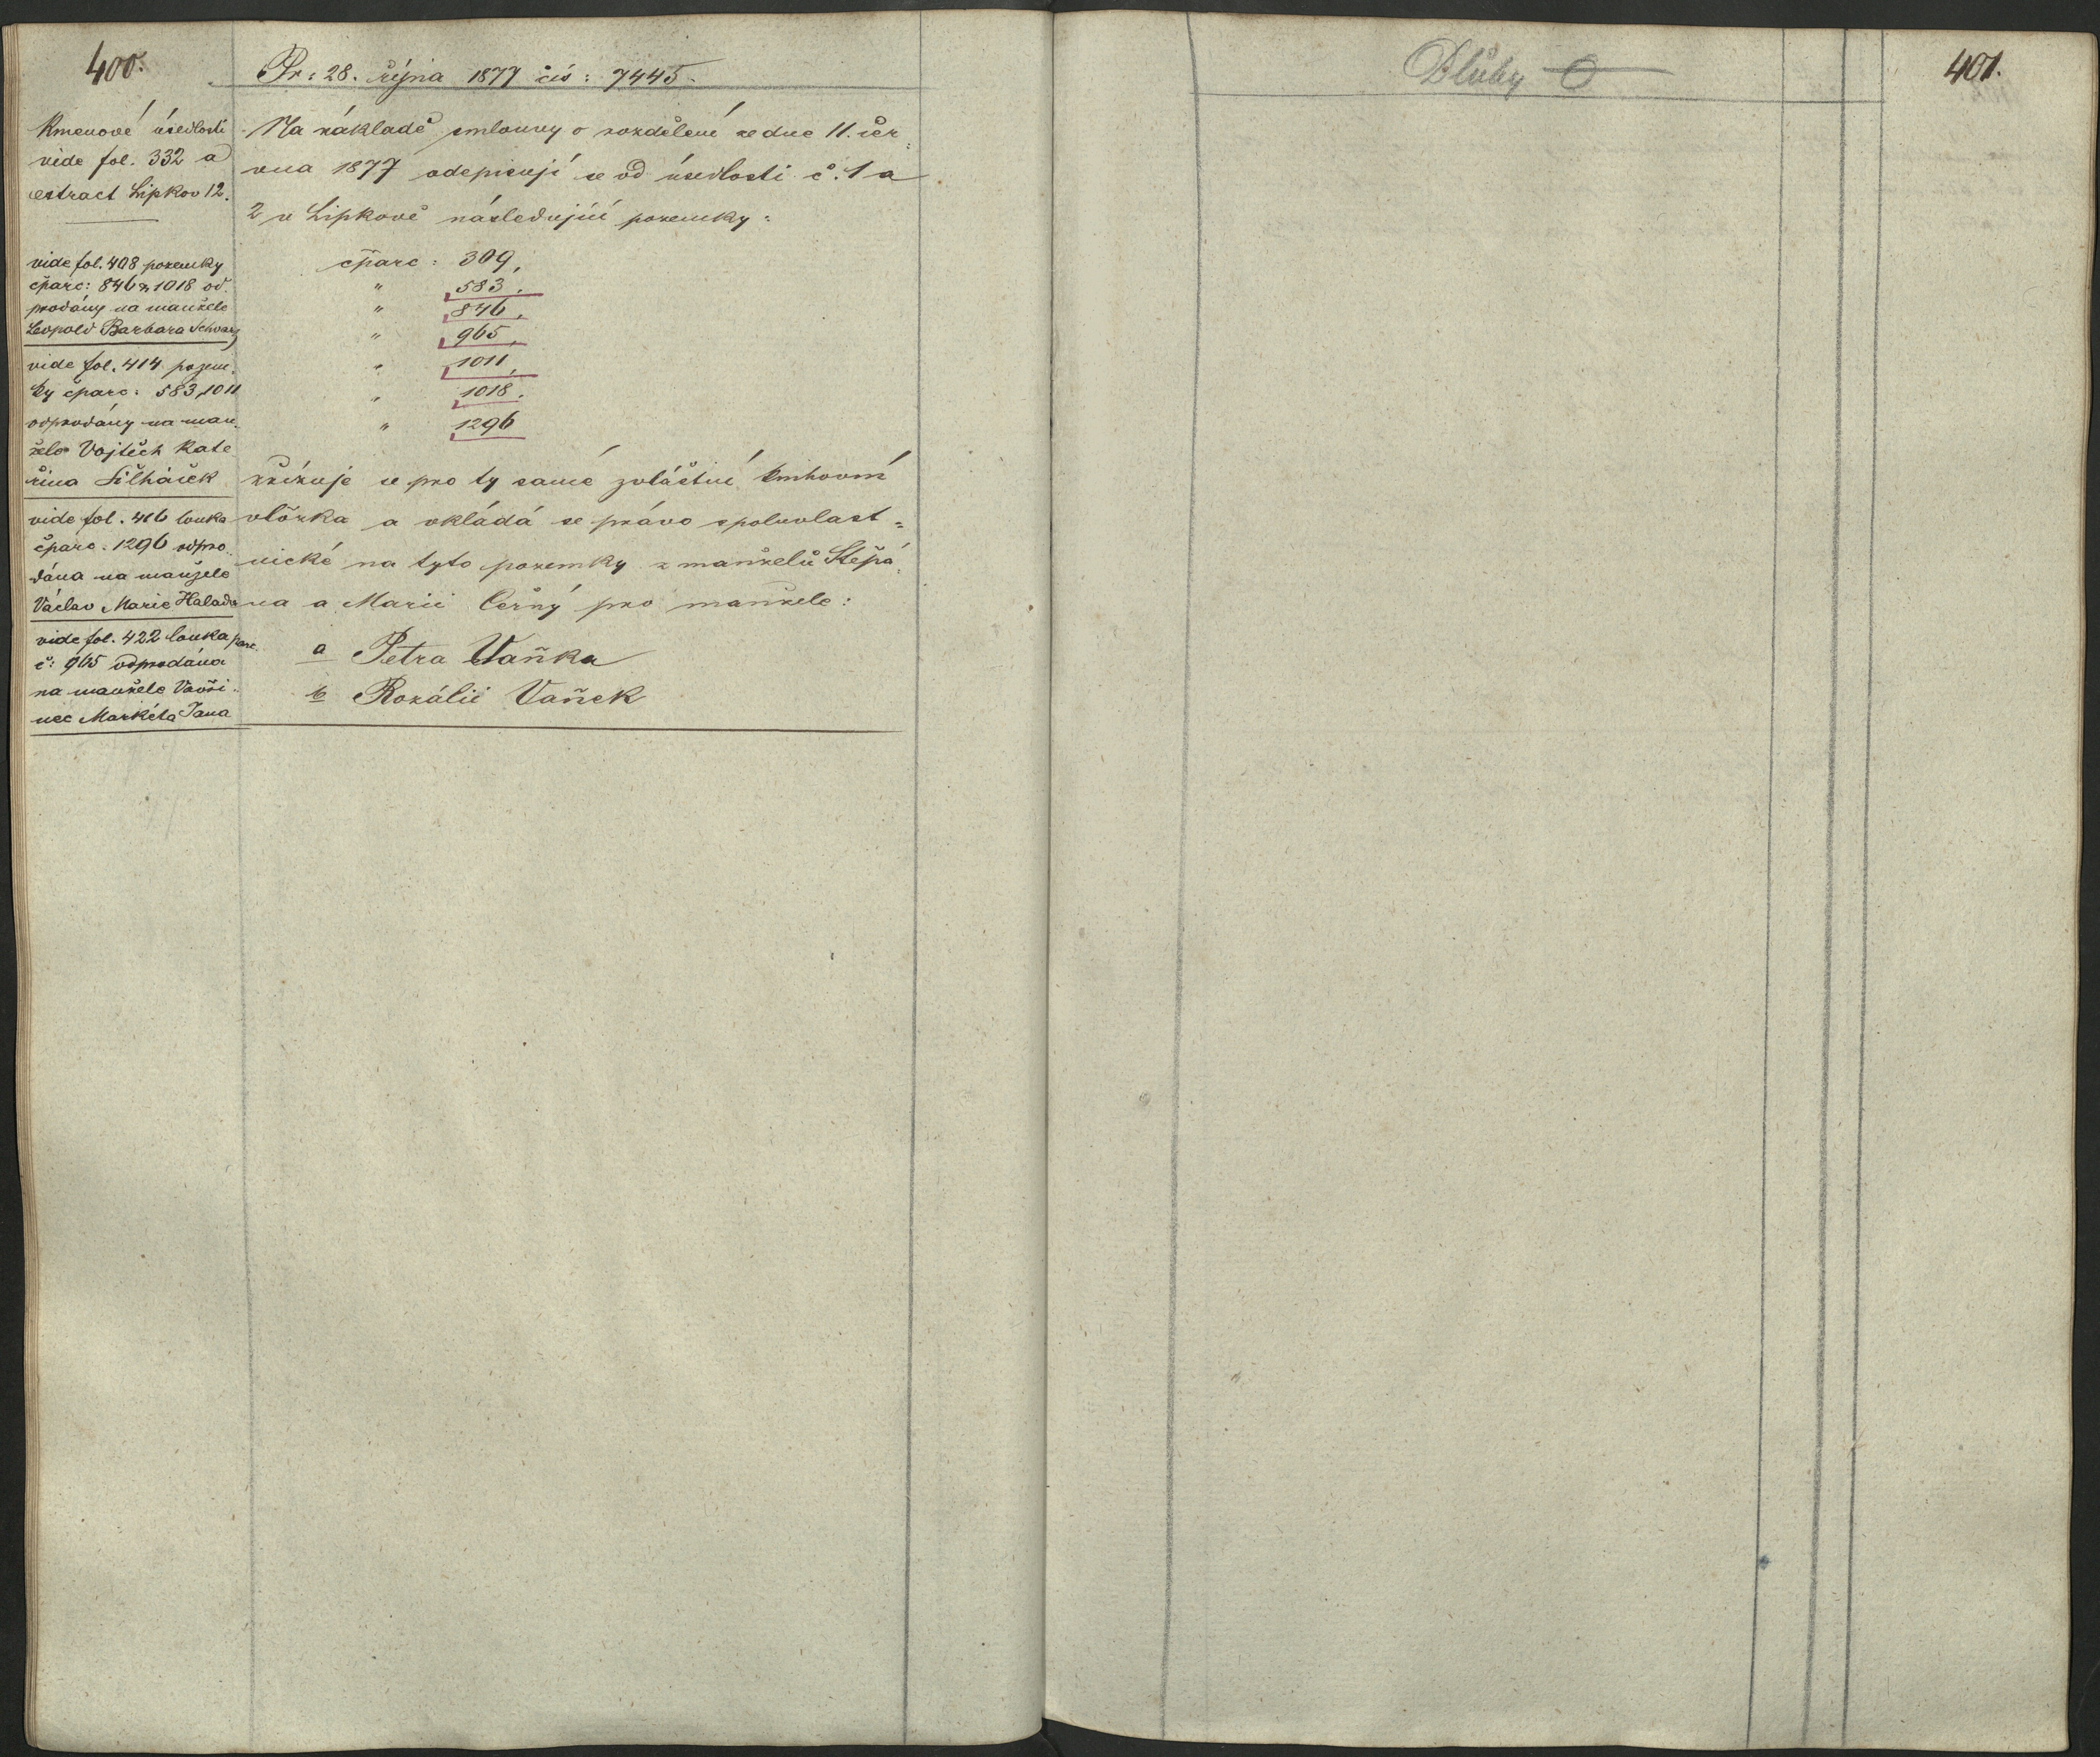 400.
Pr: 28. října 1877 čís: 7445.
Kmenové úsedlosti
vide fol. 332 a
extract Lipkov 12.
vide fol. 408 pozemky
čparc: 846 & 1018 od-
prodány na manžele
Leopold Barbara Schwarz
vide fol. 414 pozem-
ky čparc: 583, 1011
odprodány na man-
žele Vojtěch Kate
řina Silháček
vide fol. 416 louka
čparc: 1296 odpro-
dána na manžele
Václav Marie Halada
vide fol. 422 louka parc.
č: 965 odprodána
na manžele Vavři-
nec Markéta Jana
Na základě smlouvy o rozdělení ze dne 11. čer-
vna 1877 odepisují se od úsedlosti č. 1 a
2 v Lipkově následující pozemky:
čparc: 309,
" 583,
" 846,
" 965,
" 1011,
" 1018,
" 1296
zřizuje se pro ty samé zvláštní knihovní
vložka a vkládá se právo spoluvlast=
nické na tyto pozemky z manželů Štěpá-
na a Marii Černý pro manžele:
a Petra Vaňka
b Rozálii Vaněk
Dluhy 0
401.